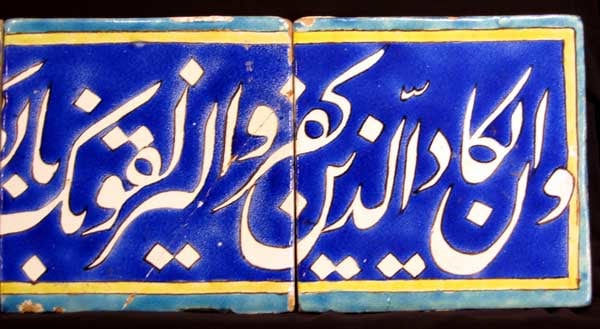 وان يكاد الّذين كفروا ليزلقونك